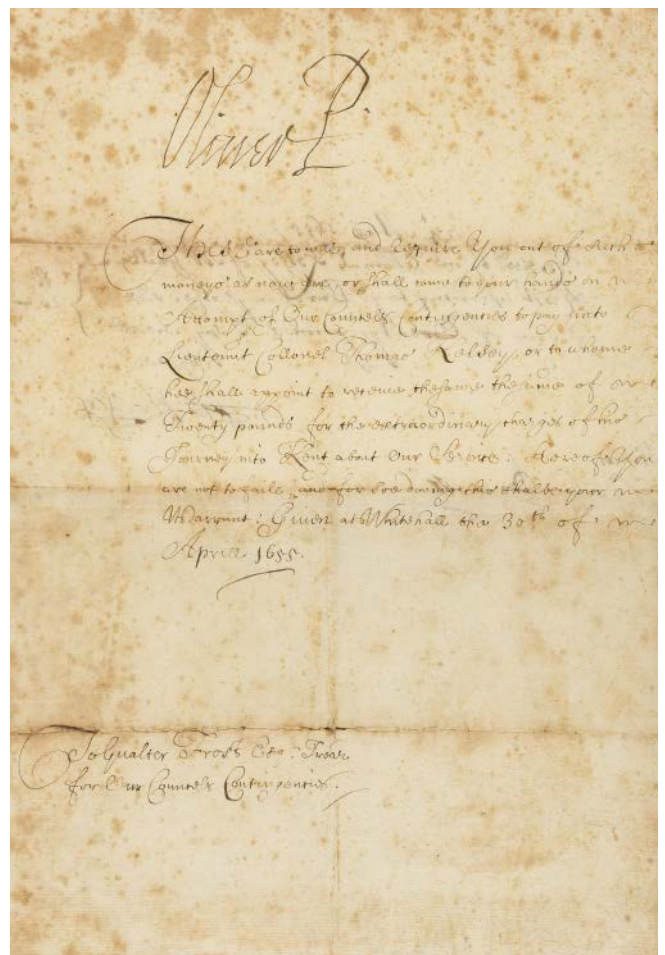 Oliver P
These are to will and Require You out of such
moneys as now are, or shall come to your hands on
Accompt of Our Councels Contingencies to pay unto
Lieutennt Collonel Thomas Kelsey, or to whome
hee shall appoint to receive the same the sume of
Twenty pounds for the extraordinary charges of his
Journey into Kent about Our Service: Hereof You
are not to faile, and for soe doeing this shalbe your
Warrant: Given at Whitehall the 30th of
Aprill 1655.
To Gualter Frost Esqr. Trear
for Our Councels Contingencies.